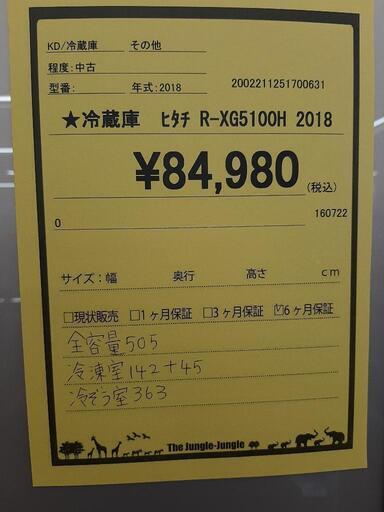 KD/冷蔵庫 その他
程度:中古
型番: 年式:2018 2002211251700631
★冷蔵庫 ヒタチ R-XG5100H 2018
¥84,980(税込)
0 160722
サイズ:幅 奥行 高さ cm
□現状販売 □1ヶ月保証 □3ヶ月保証 ☑6ヶ月保証
全容量505
冷凍室142+45
冷ぞう室363
The Jungle-Jungle